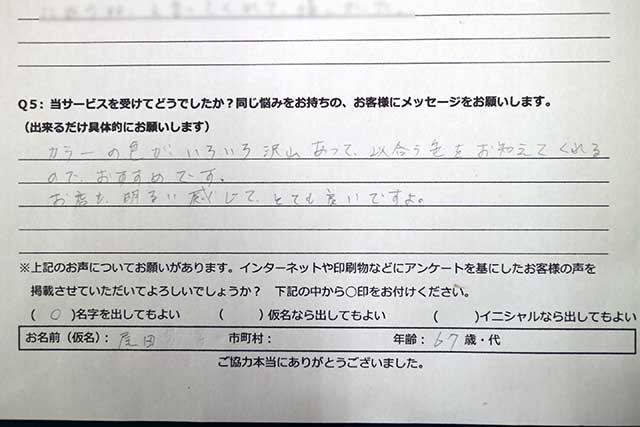 Q5：当サービスを受けてどうでしたか？同じ悩みをお持ちの、お客様にメッセージをお願いします。
（出来るだけ具体的にお願いします）
カラーの色が、いろいろ沢山あって、似合う色をお知えてくれる
ので、おすすめです。
お店も、明るい感じで、とても良いですよ。
※上記のお声についてお願いがあります。インターネットや印刷物などにアンケートを基にしたお客様の声を
掲載させていただいてよろしいでしょうか？ 下記の中から〇印をお付けください。
（ ○ ）名字を出してもよい （ ）仮名なら出してもよい （ ）イニシャルなら出してもよい
お名前（仮名）： 尾田 市町村： 年齢： 67 歳・代
ご協力本当にありがとうございました。